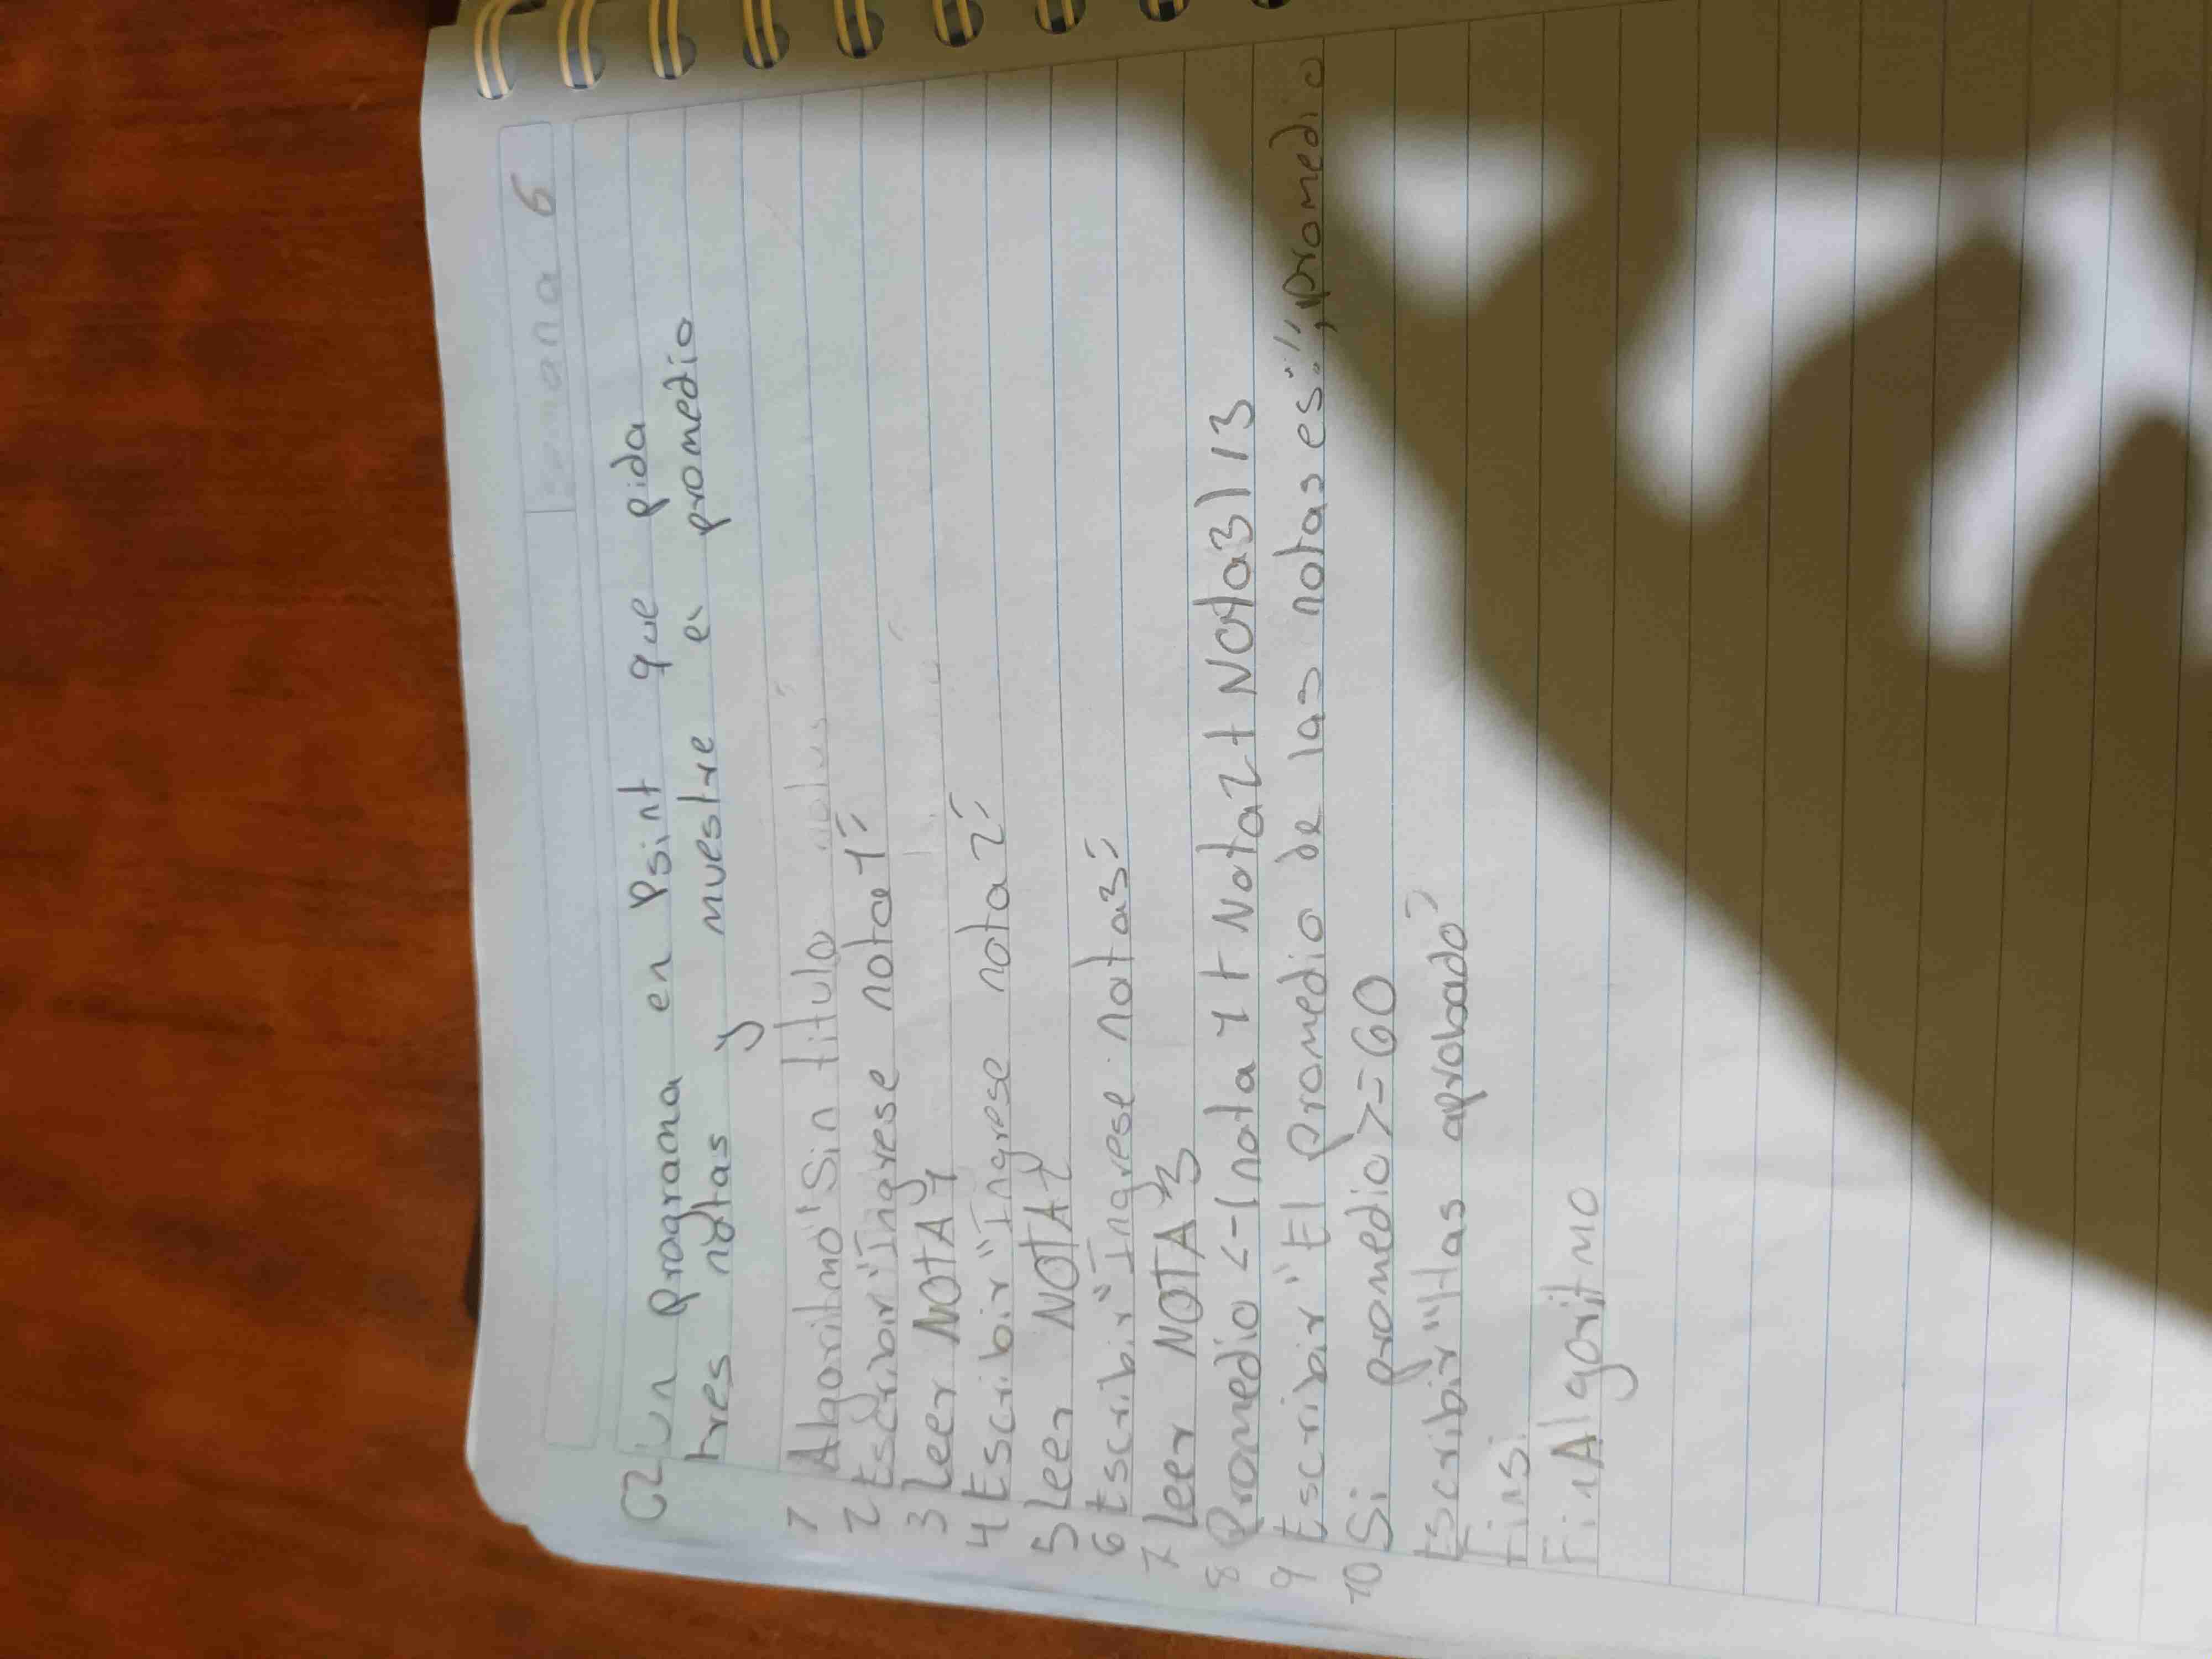 Semana 6
C2 Un programa en Psint que pida
tres notas y muestre el promedio
y
1 Algoritmo "Sin titulo
2 Escribir "Ingrese nota 1"
3 Leer NOTA 1
4 Escribir "Ingrese nota 2"
5 Leer NOTA 2
6 Escribir "Ingrese nota 3"
7 Leer NOTA 3
8 Promedio <- (nota 1 + Nota 2 + Nota 3) / 3
9 Escribir "El Promedio de las notas es:", promedio
10 Si promedio >= 60
Escribir "Has aprobado"
FinS.
FinAlgoritmo